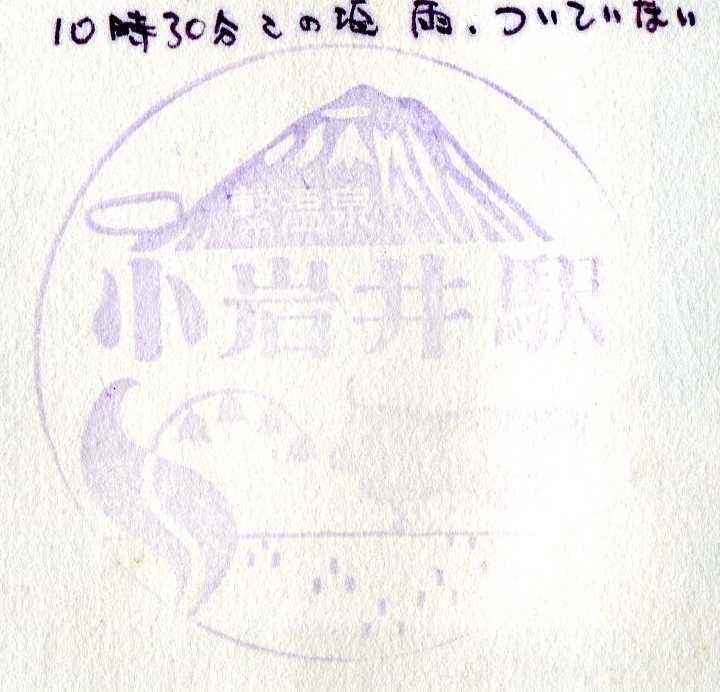 10時30分この塩 雨.ついていない
繋温泉
小岩井駅